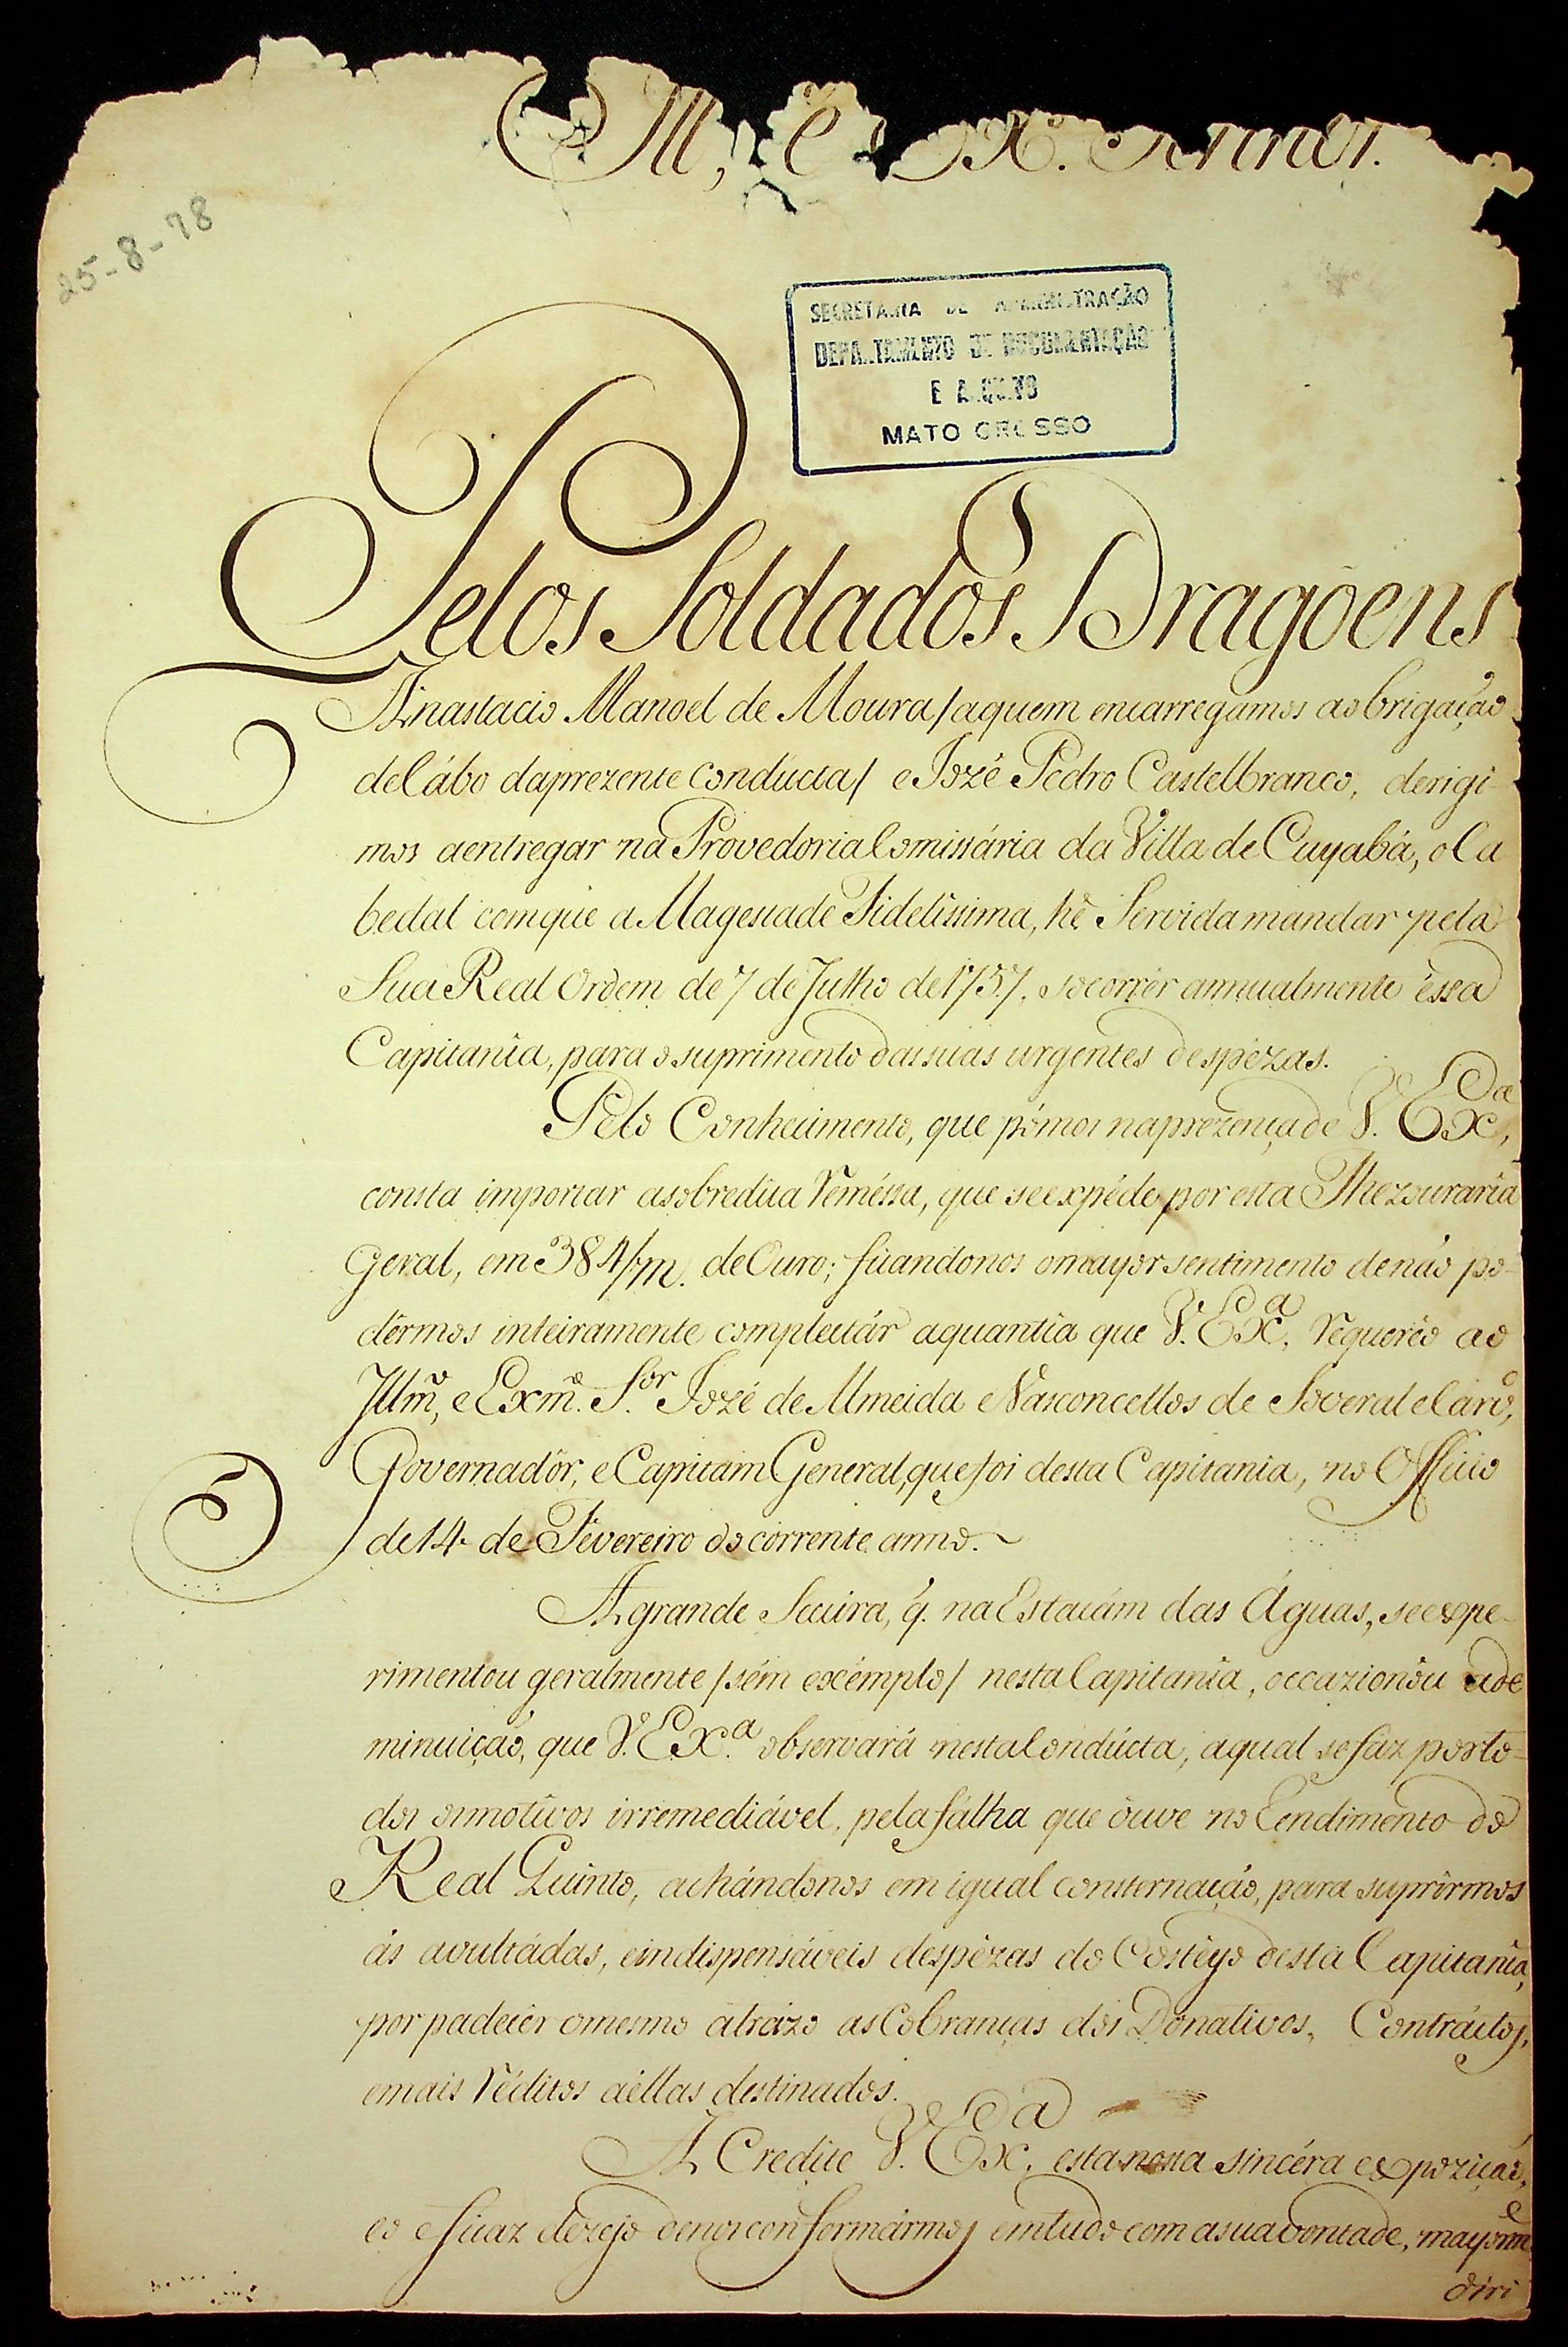 Ill, e Ex. Senhor.
25-8-78
SECRETARIA DE ADMINISTRAÇÃO
DEPARTAMENTO DE DOCUMENTAÇÃO
E ARQUIVO
MATO GROSSO
Pelos Soldados Dragoens
Anastacio Manoel de Moura/aquem encarregamos aobrigação
deCábo daprezente condúcta/ eJozé Pedro Castelbranco, derigi-
mos aentregar na ProvedoriaComissária da Villa de Cuyabá, oCa
bedal comque a Magestade Fidelissima, hé Servida mandar pela
Sua Real Ordem de 7 de Julho de 1757, socorrêr annualmente éssa
Capitanîa, para osuprimento dassuas urgentes despèzas.
Pelo Conhecimento, que pômos naprezença de V. Exª,
consta importar asobredita Reméssa, que seexpéde por esta Thezouraria
Geral, em 384/m. de Ouro; ficandonos omayor sentimento denão po-
dêrmos inteiramente completár aquantîa que V. Exª, Requerêo ao
Illmº, eExmº. Sor. Jozé de Almeida eVasconcellos de Soveral eCarvº,
Governadôr, eCapitam General, que foi desta Capitania, no Officio
de 14 de Fevereiro docorrente anno.~
A grande Secúra, q̃. na Estacám das Águas, seexpe-
rimentou geralmente /sém exémplo/ nesta Capitanîa, occazionôu ade
minuição, que V. Exª. observará nestaCondúcta, aqual sefaz porto-
dos osmotivos irremediável, pelafálha que ôuve no Rendimento do
Real Quinto, achándonos em igual consternação, para suprîrmos
ás avultádas, eindispensáveis despèzas do Costêyo desta Capitanîa,
por padecêr omesmo atrázo as Cobranças dos Donativos, Contráctos,
emais Réditos aéllas destinados.
A Credite V. Exª. esta nossa sincéra expozição,
eo eficaz dezejo denos conformármos emtudo com asuavontade, mayorme
diri